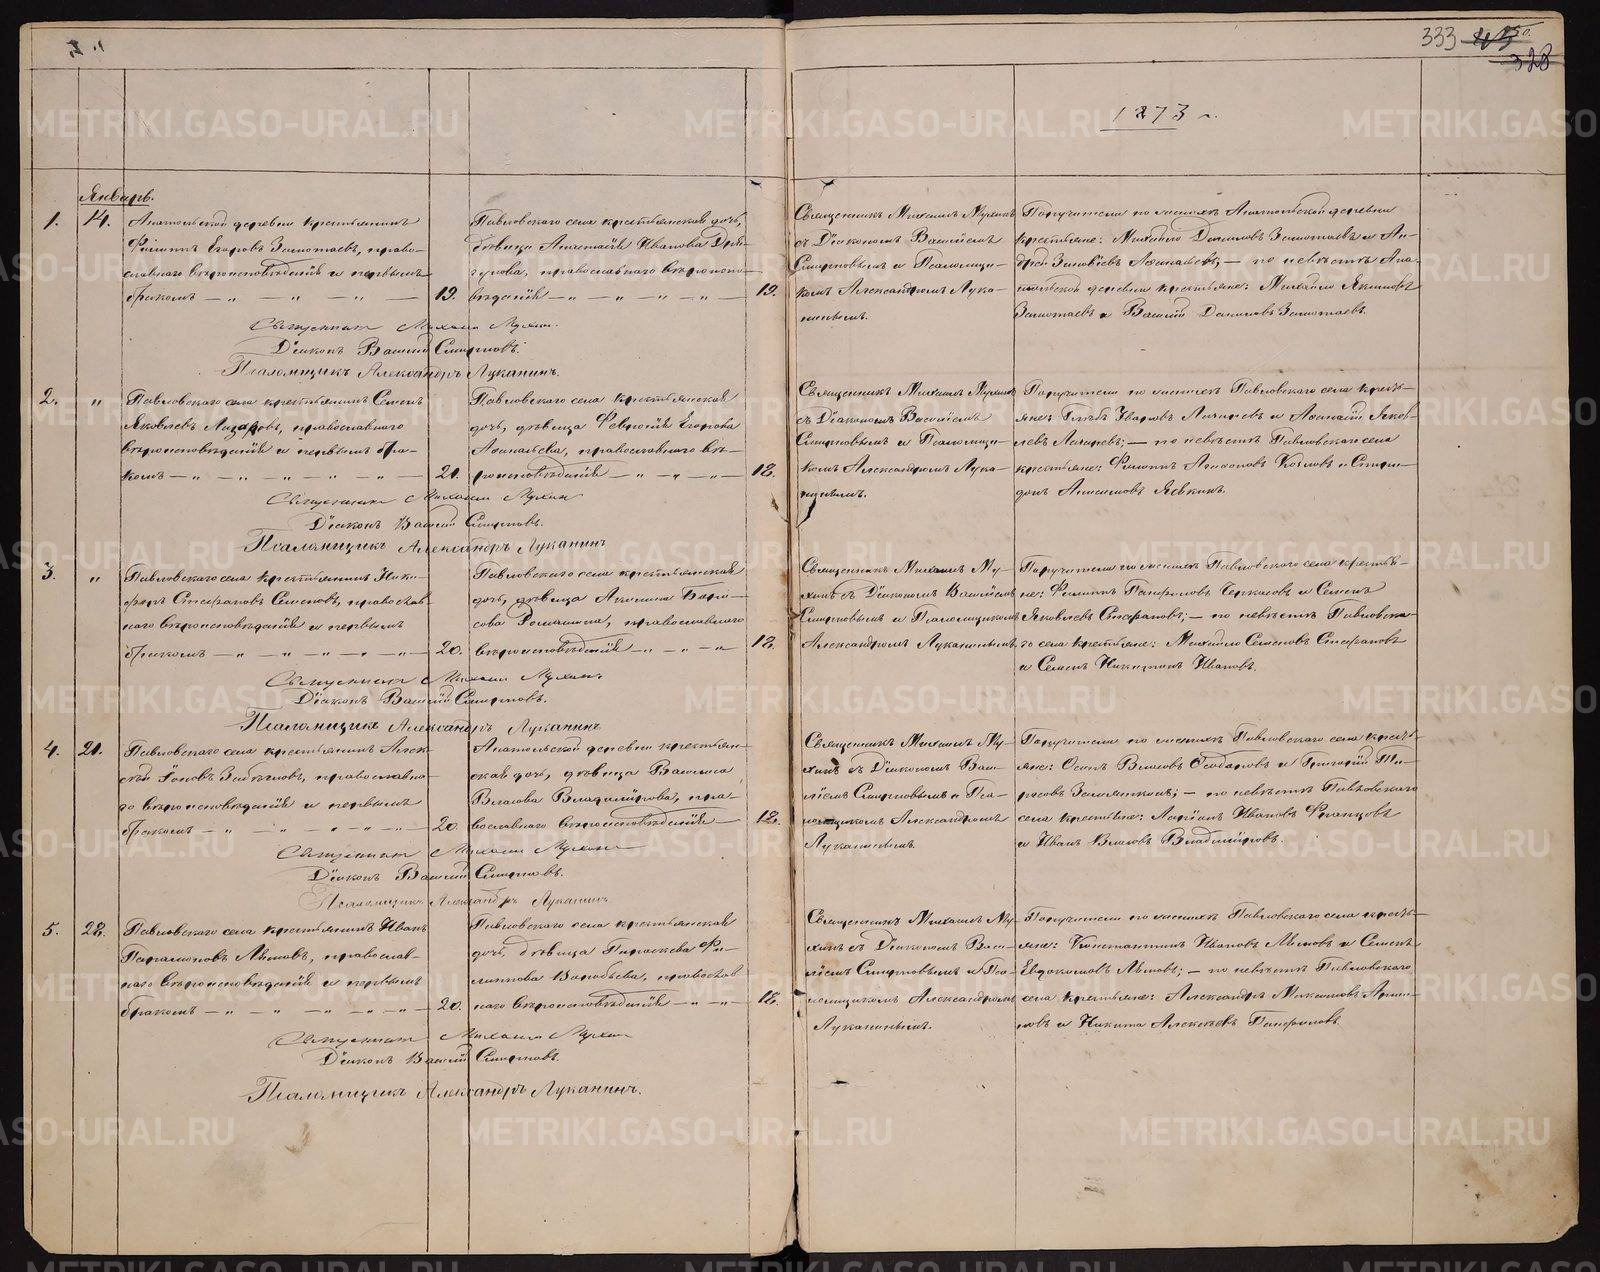 333
328
1873 г.
Январь.
1. 14. Анатольской деревни крестьянинъ
Филиппъ Егоровъ Замотаевъ, право-
славнаго вѣроисповѣданія и первымъ
бракомъ 19.
Павловскаго села крестьянская дочь,
дѣвица Анастасія Иванова
православнаго вѣроиспо-
вѣданія 19.
Священникъ Михаилъ Мухинъ
съ Діакономъ Василіемъ
Смирновымъ и Псаломщи-
комъ Александромъ Лука-
нинымъ.
Поручители по женихѣ Анатольской деревни
крестьяне: Михайло Даниловъ Замотаевъ и Ан-
дрей Зиновіевъ Аѳанасьевъ; — по невѣстѣ Ана-
тольской деревни крестьяне: Михайло Якимовъ
Замотаевъ и Василій Даниловъ Замотаевъ.
Священникъ Михаилъ Мухинъ.
Діаконъ Василій Смирновъ.
Псаломщикъ Александръ Луканинъ.
2. " Павловскаго села крестьянинъ Семенъ
Яковлевъ Лазаревъ, православнаго
вѣроисповѣданія и первымъ бра-
комъ 21.
Павловскаго села крестьянская
дочь, дѣвица Февронія Егорова
православнаго вѣ-
роисповѣданія 18.
Священникъ Михаилъ Мухинъ
съ Діакономъ Василіемъ
Смирновымъ и Псаломщи-
комъ Александромъ Лука-
нинымъ.
Поручители по женихѣ Павловскаго села кресть-
яне: Глѣбъ Лазаревъ и Аѳанасій Яков-
левъ Лазаревъ; — по невѣстѣ Павловскаго села
крестьяне: Филиппъ Агаѳоновъ Козловъ и Спири-
донъ Анисимовъ
Священникъ Михаилъ Мухинъ
Діаконъ Василій Смирновъ.
Псаломщикъ Александръ Луканинъ
3. " Павловскаго села крестьянинъ Ники-
форъ Стефановъ Семеновъ, православ-
наго вѣроисповѣданія и первымъ
бракомъ 20.
Павловскаго села крестьянская
дочь, дѣвица Акилина Бори-
сова Ромашина, православнаго
вѣроисповѣданія 18.
Священникъ Михаилъ Му-
хинъ съ Діакономъ Василіемъ
Смирновымъ и Псаломщикомъ
Александромъ Луканинымъ.
Поручители по женихѣ Павловскаго села крестья-
не: Филиппъ Панфиловъ Черкасовъ и Семенъ
Яковлевъ Стефановъ; — по невѣстѣ Павловска-
го села крестьяне: Михайло Семеновъ Стефановъ
и Семенъ Никитинъ Ивановъ.
Священникъ Михаилъ Мухинъ
Діаконъ Василій Смирновъ.
Псаломщикъ Александръ Луканинъ
4. 21. Павловскаго села крестьянинъ Алек-
сѣй Іоновъ православна-
го вѣроисповѣданія и первымъ
бракомъ 20.
Анатольской деревни крестьян-
ская дочь, дѣвица Василиса
Власова Владимірова, пра-
вославнаго вѣроисповѣданія 18.
Священникъ Михаилъ Му-
хинъ съ Діакономъ Васи-
ліемъ Смирновымъ и Пса-
ломщикомъ Александромъ
Луканинымъ.
Поручители по женихѣ Павловскаго села кресть-
яне: Осипъ Власовъ и Григорій Ти-
— по невѣстѣ Павловскаго
села крестьяне: Ларіонъ Ивановъ Францовъ
и Иванъ Власовъ Владиміровъ.
Священникъ Михаилъ Мухинъ
Діаконъ Василій Смирновъ.
Псаломщикъ Александръ Луканинъ
5. 28. Павловскаго села крестьянинъ Иванъ
Парамоновъ православ-
наго вѣроисповѣданія и первымъ
бракомъ 20.
Павловскаго села крестьянская
дочь, дѣвица Параскева Фи-
липпова Воробьева, православ-
наго вѣроисповѣданія 18.
Священникъ Михаилъ Му-
хинъ съ Діакономъ Васи-
ліемъ Смирновымъ и Пса-
ломщикомъ Александромъ
Луканинымъ.
Поручители по женихѣ Павловскаго села кресть-
яне: Константинъ Ивановъ и Семенъ
Евдокимовъ — по невѣстѣ Павловскаго
села крестьяне: Александръ Максимовъ
и Никита Алексѣевъ Панфиловъ.
Священникъ Михаилъ Мухинъ
Діаконъ Василій Смирновъ.
Псаломщикъ Александръ Луканинъ.
METRIKI.GASO-URAL.RU